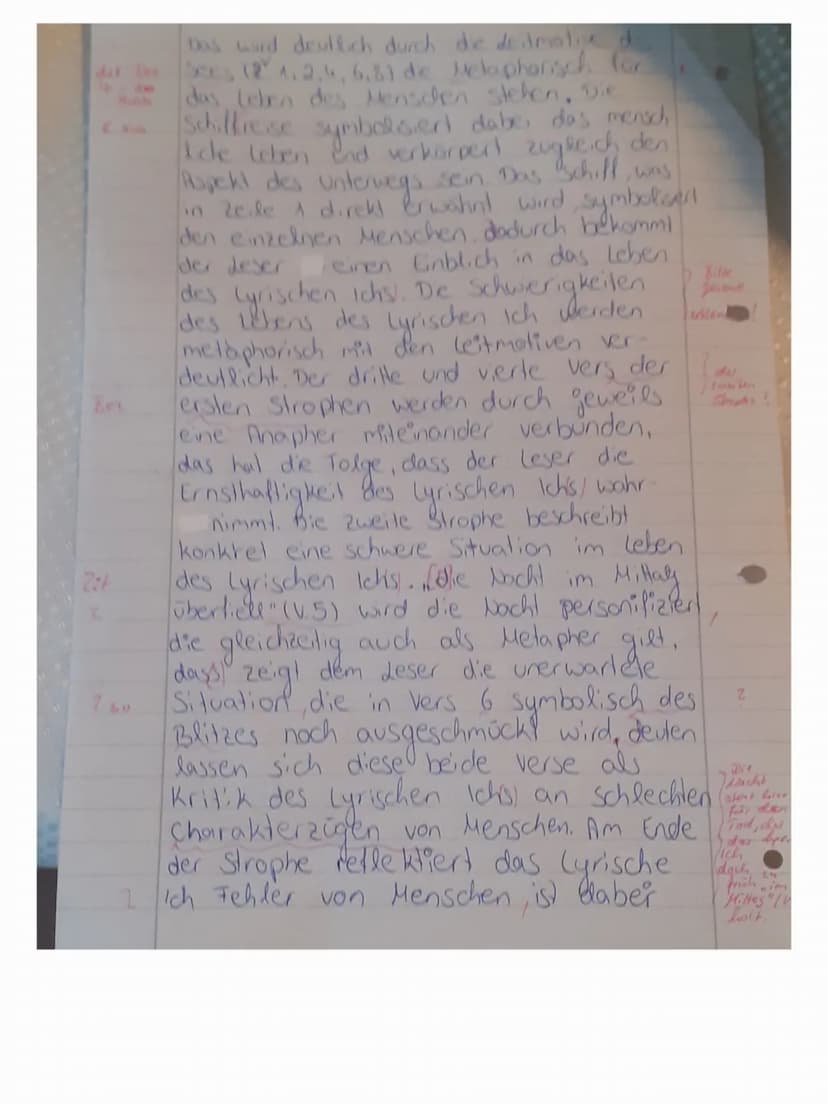 Das wird deutlich durch die Leitmotive d
Sees (V 1,2,4,6,8) die Metaphorisch für
das Leben des Menschen stehen. Die
Schiffreise symbolisiert dabei das mensch
liche Leben und verkörpert zugleich den
Aspekt des unterwegs sein. Das Schiff, was
in Zeile 1 direkt erwähnt wird, symbolisiert
den einzelnen Menschen, dadurch bekommt
der Leser einen Einblich in das Leben
des Lyrischen Ichs. Die Schwierigkeiten
des Lebens des Lyrischen Ich werden
metaphorisch mit den Leitmotiven ver-
deutlicht. Der dritte und vierte Vers der
ersten Strophen werden durch jeweils
eine Anapher miteinander verbunden,
das hat die Folge, dass der Leser die
Ernsthaftigkeit des Lyrischen Ichs wahr-
nimmt. Die zweite Strophe beschreibt
konkret eine schwere Situation im Leben
des Lyrischen Ichs. „[D]ie Nacht im Mittag
überfiell" (V.5) wird die Nacht personifiziert,
die gleichzeitig auch als Metapher gilt,
dass zeigt dem Leser die unerwartete
Situation, die in Vers 6 symbolisch des
Blitzes noch ausgeschmückt wird, deuten
lassen sich diese beide Verse als
Kritik des Lyrischen Ichs an schlechten
Charakterzügen von Menschen. Am Ende
der Strophe reflektiert das Lyrische
Ich Fehler von Menschen, ist daber
Bitte
genauer
der
zweiten
Strophe!
Zit
Die
Nacht
steht hier
für den
Tod, der
das lyr.
Ich
doch zu
früh „im
Mittag" (V
holt.